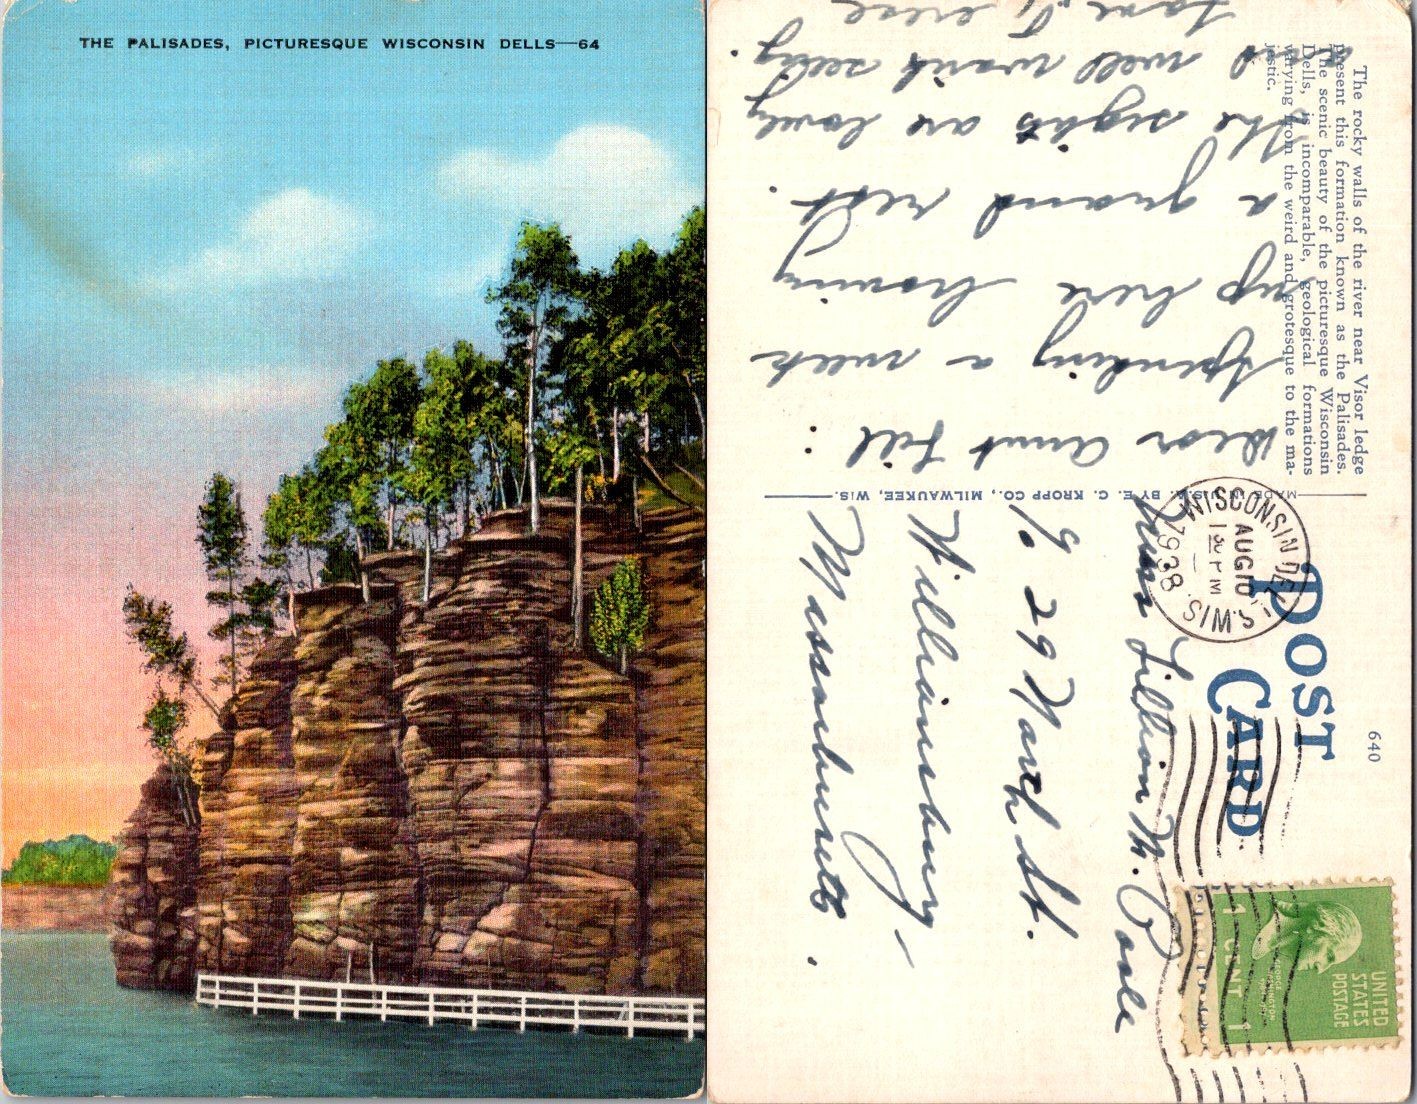 THE PALISADES, PICTURESQUE WISCONSIN DELLS—64
The rocky walls of the river near Visor ledge
present this formation known as the Palisades.
The scenic beauty of the picturesque Wisconsin
Dells, is incomparable, geological formations
varying from the weird and grotesque to the ma-
jestic.
Dear Aunt Lil:
Spending a week
up here having
a grand rest.
The sights are lovely
and well worth seeing.
Love,
MADE IN U.S.A. BY E. C. KROPP CO., MILWAUKEE, WIS.
640
POST
CARD
WISCONSIN DELLS, WIS.
AUG 10
1 30 PM
1938
UNITED
STATES
POSTAGE
GEORGE WASHINGTON
1 CENT 1
Lillian M. Cole
29 North St.
Williamsburg
Massachusetts.